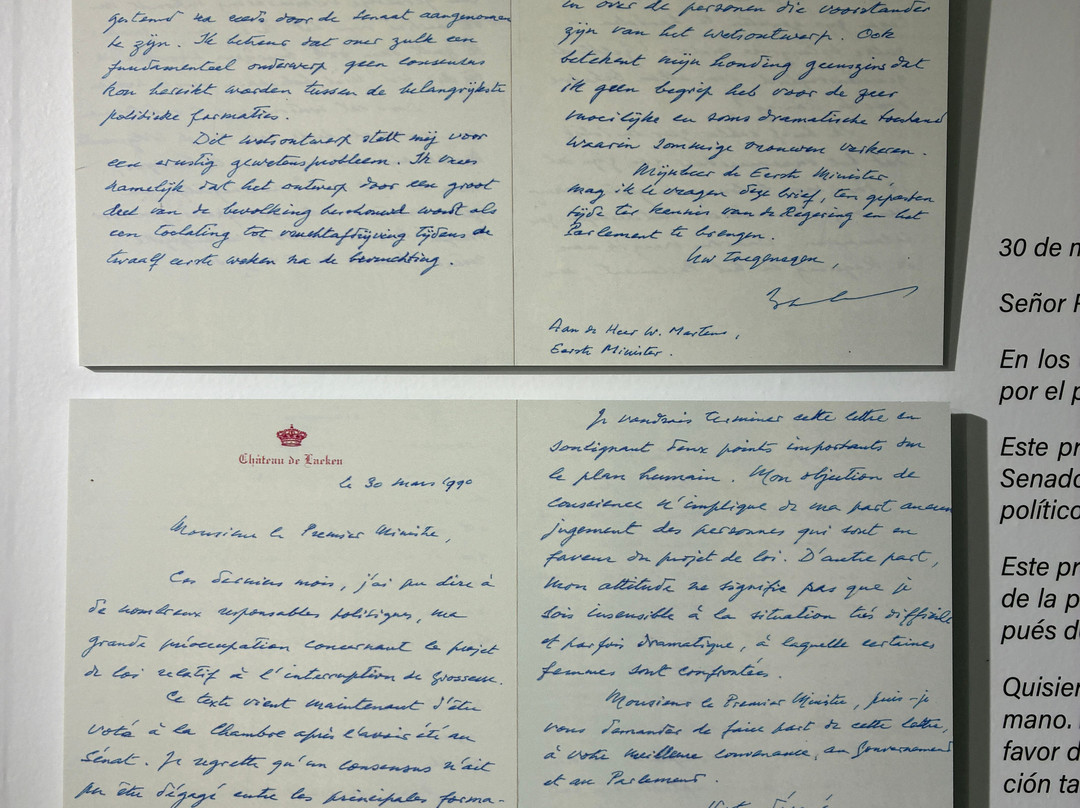 gestemd na reeds door de Senaat aangenomen
te zijn. Ik betreur dat over zulk een
fundamenteel onderwerp geen consensus
kon bereikt worden tussen de belangrijkste
politieke formaties.
Dit wetsontwerp stelt mij voor
een ernstig gewetensprobleem. Ik vrees
namelijk dat het ontwerp door een groot
deel van de bevolking beschouwd wordt als
een toelating tot vruchtafdrijving tijdens de
twaalf eerste weken na de bevruchting.
en over de personen die voorstander
zijn van het wetsontwerp. Ook
betekent mijn houding geenszins dat
ik geen begrip heb voor de zeer
moeilijke en soms dramatische toestand
waarin sommige vrouwen verkeren.
Mijnheer de Eerste Minister,
mag ik U vragen deze brief, ten gepasten
tijde ter kennis van de Regering en het
Parlement te brengen.
Uw Toegenegen,
Aan de Heer W. Martens,
Eerste Minister.
Château de Laeken
le 30 mars 1990
Monsieur le Premier Ministre,
Ces derniers mois, j'ai pu dire à
de nombreux responsables politiques, ma
grande préoccupation concernant le projet
de loi relatif à l'interruption de grossesse.
Ce texte vient maintenant d'être
voté à la Chambre après l'avoir été au
Sénat. Je regrette qu'un consensus n'ait
pu être dégagé entre les principales forma-
Je voudrais terminer cette lettre en
soulignant deux points importants sur
le plan humain. Mon objection de
conscience n'implique de ma part aucun
jugement des personnes qui sont en
faveur du projet de loi. D'autre part,
mon attitude ne signifie pas que je
sois insensible à la situation très difficile
et parfois dramatique, à laquelle certaines
femmes sont confrontées.
Monsieur le Premier Ministre, puis-je
vous demander de faire part de cette lettre,
à votre meilleure convenance, au Gouvernement
et au Parlement.
30 de m
Señor P
En los
por el p
Este pr
Senado
político
Este pr
de la p
pués de
Quisier
mano.
favor d
ción ta